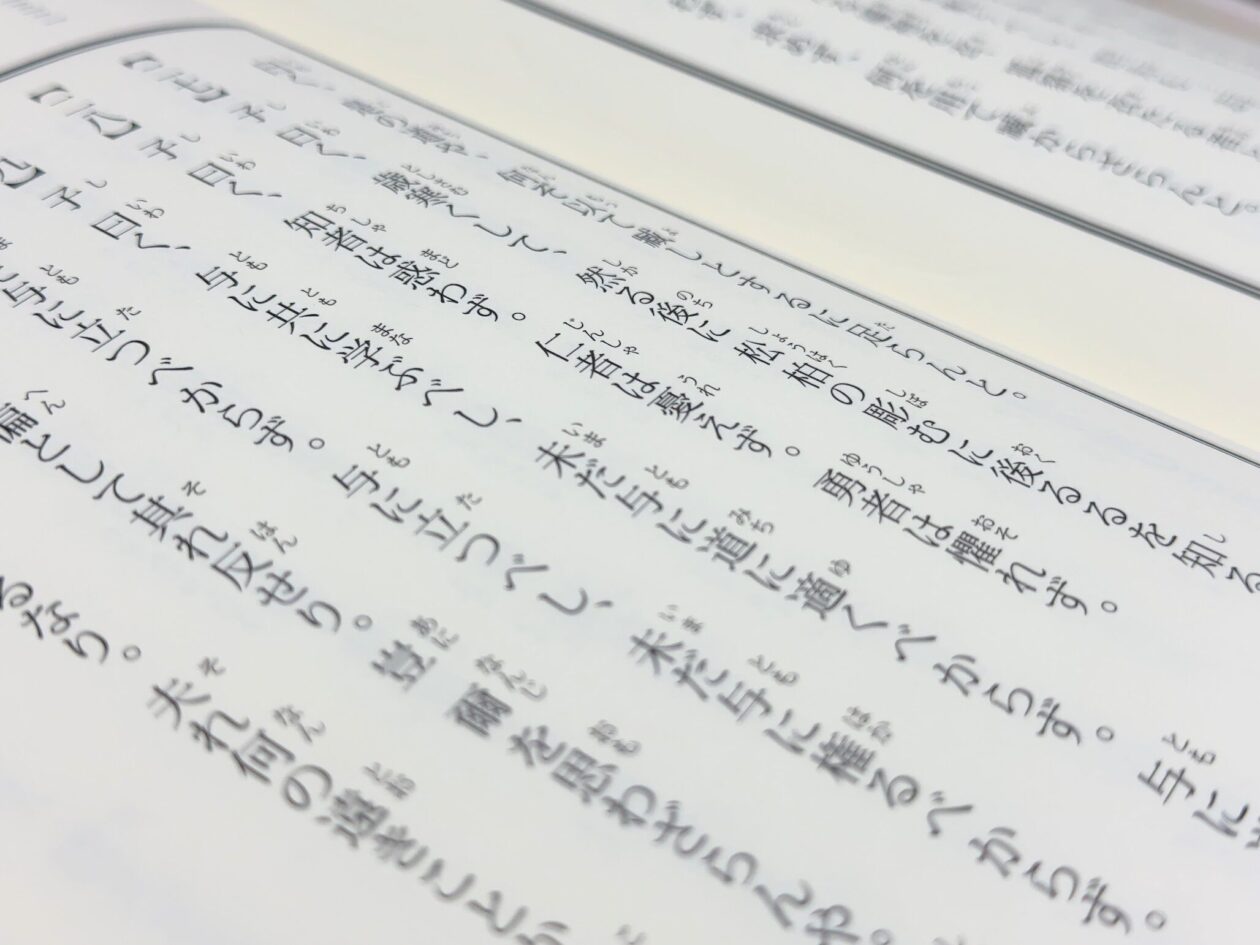 求めず、何を用て臧からざらんと。
是の道や、何ぞ以て臧しとするに足らんと。
【二七】子曰く、歳寒くして、然る後に松柏の彫むに後るるを知る
【二八】子曰く、知者は惑わず。仁者は憂えず。勇者は懼れず。
九】子曰く、与に共に学ぶべし、未だ与に道に適くべからず。与に
与に立つべからず。与に立つべし、未だ与に権るべからず。
偏として其れ反せり。豈爾を思わざらんや。
るなり。夫れ何の遠きことか